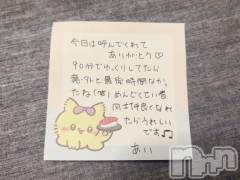 今日は呼んでくれて
ありがとう♡
90分でゆっくりしてたら
意外と最後時間なか
たね(笑)めんどくさい
仲良くなれ
たらうれしい
です♫
あい